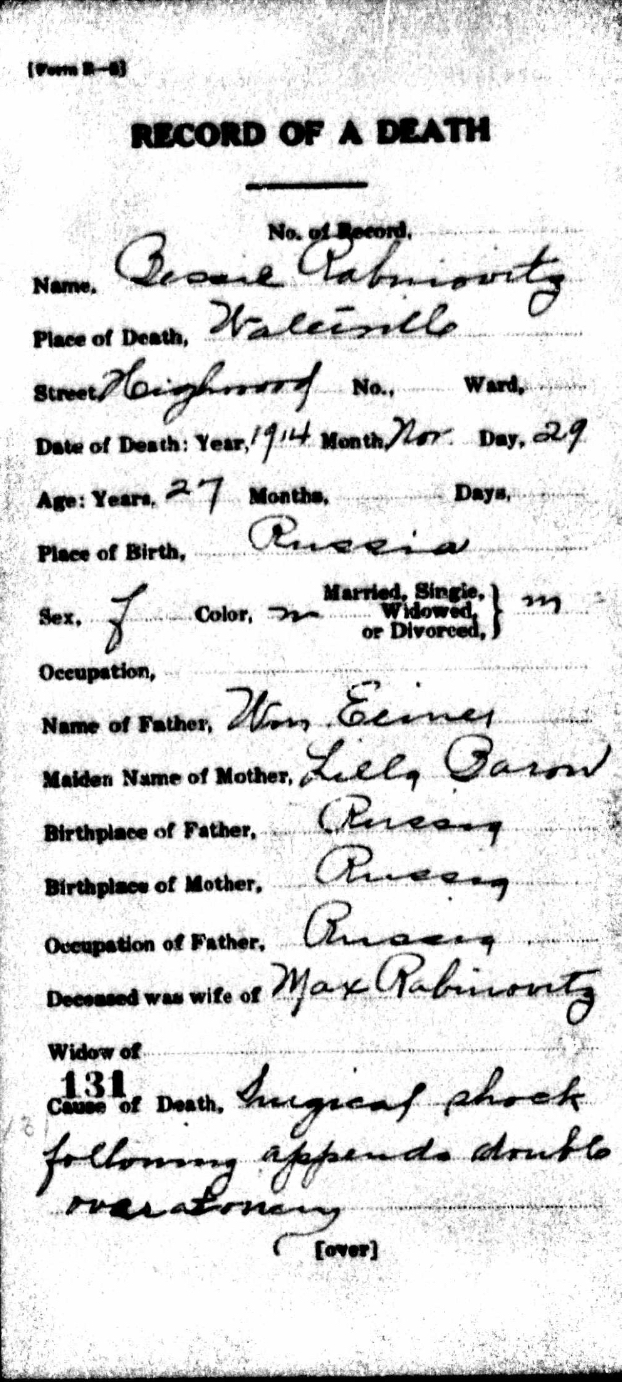 [Form R—5]
RECORD OF A DEATH
No. of Record,
Name, Bessie Rabinovitz
Place of Death, Waterville
Street, Highwood No., Ward,
Date of Death: Year, 1914 Month, Nov. Day, 29
Age: Years, 27 Months, Days,
Place of Birth, Russia
Sex, f Color, Married, Single, Widowed, or Divorced, } m
Occupation,
Name of Father, Wm
Maiden Name of Mother, Lilly Baron
Birthplace of Father, Russia
Birthplace of Mother, Russia
Occupation of Father, Russia
Deceased was wife of Max Rabinovitz
Widow of
131
Cause of Death, Surgical shock
following appends double
[over]